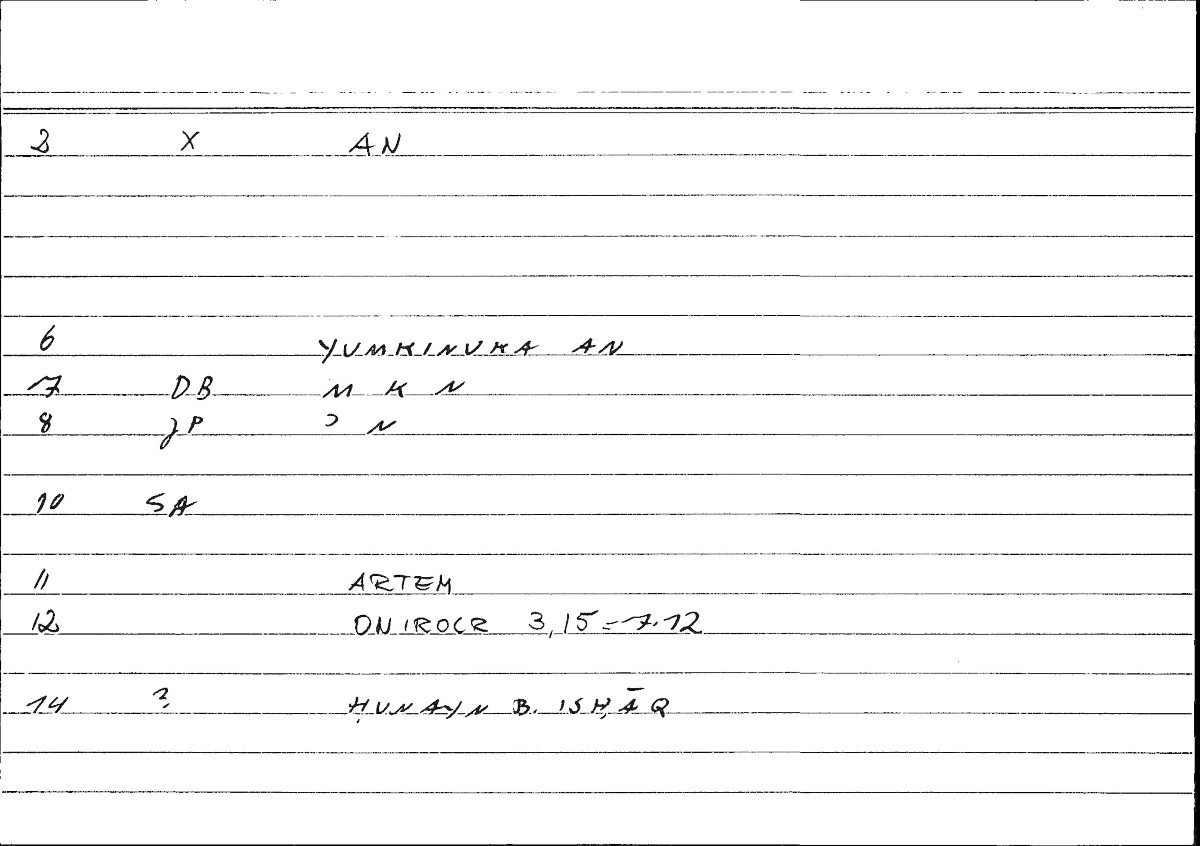 3 X AN
6 YUMKINUKA AN
7 DB M K N
8 JP Ɔ N
10 SA
11 ARTEM
12 ONIROCR 3,15=7.12
14 ? ḤUNAYN B. ISḤĀQ